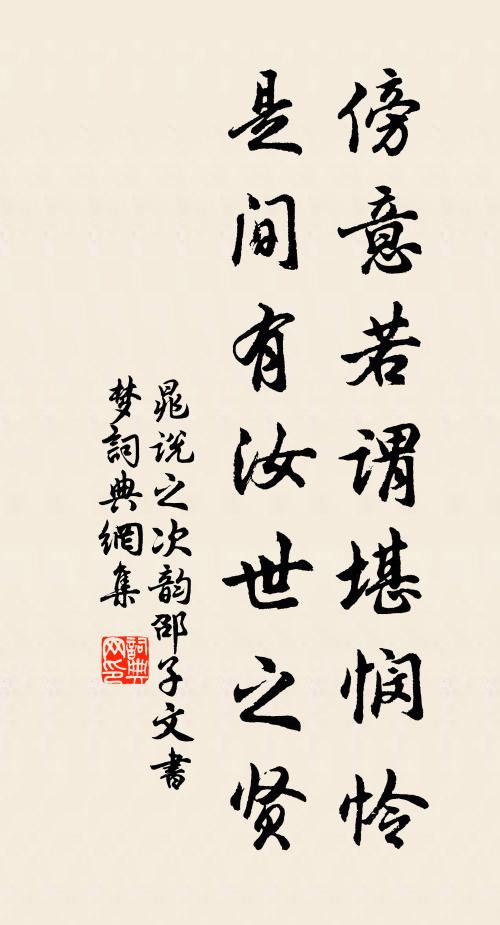 傍意若谓堪悯怜
是间有汝世之贤
晁说之次韵邵子文书
梦词典网集
詞典网印